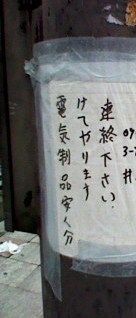 電気制品安く分
けてやります
連終下さい.
09
3-7
井